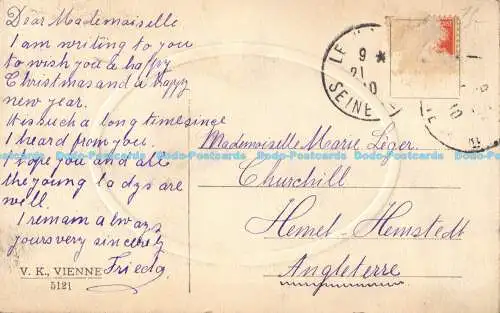 Dear Mademoiselle
I am writing to you
to wish you a happy
Christmas and a happy
new year.
It is such a long time singe
I heard from you.
I hope you and all
the young ladys are
well.
I remam always
yours very sincerely
Frieda
V. K., VIENNE
5121
LE
9 *
21
10
SEINE
10
Mademoiselle Marie Léger.
Churchill
Hemel-Hemstedt
Angleterre
Dodo-Postcards Dodo-Postcards Dodo-Postcards Dodo-Postcards Dodo-Postcards